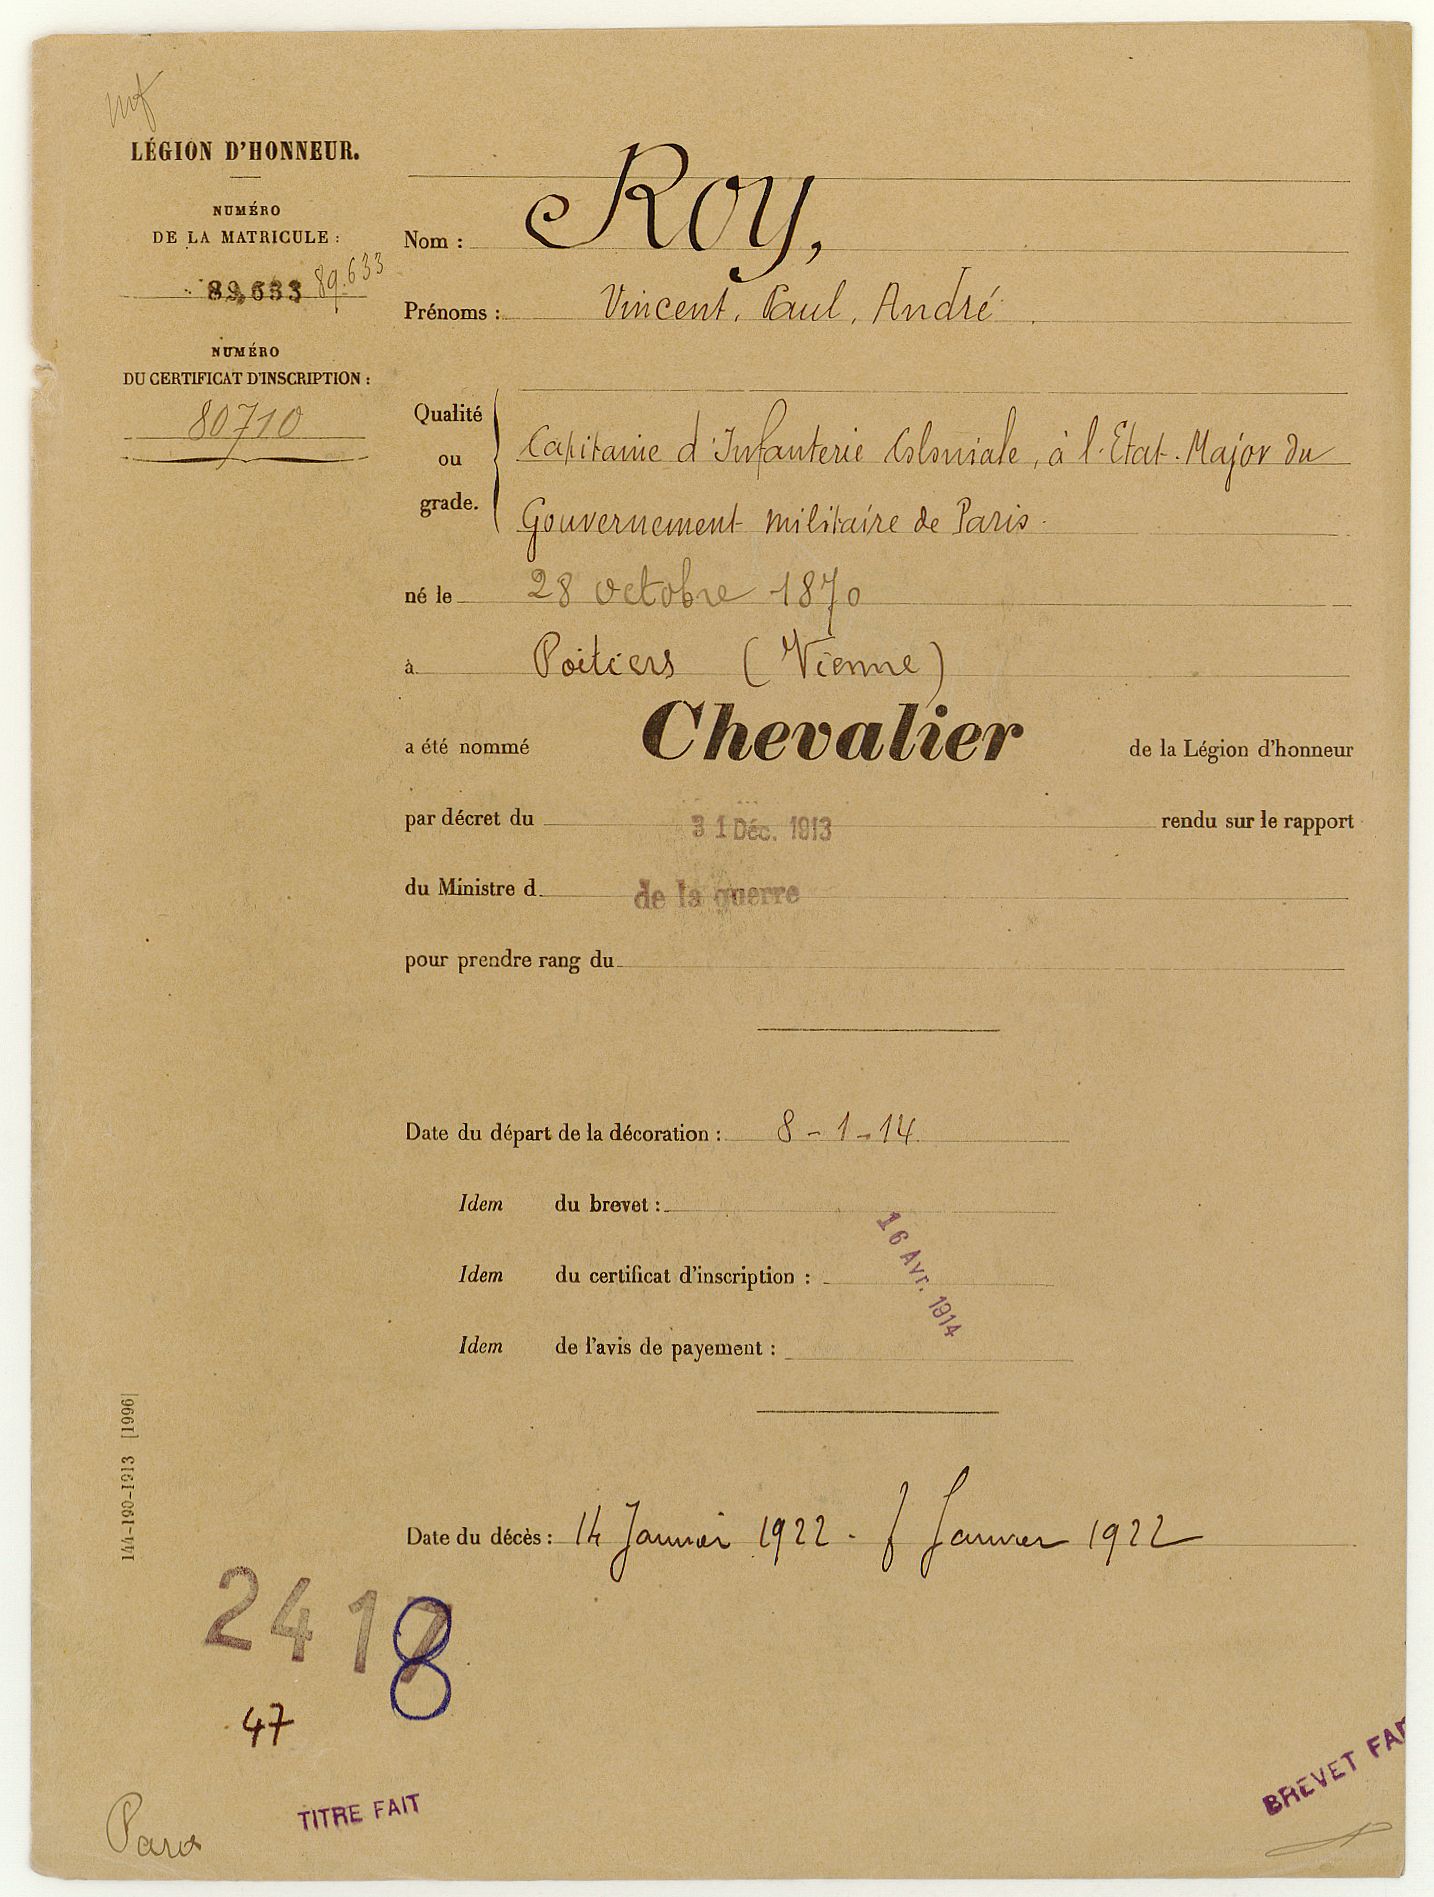 LÉGION D'HONNEUR.
NUMÉRO
DE LA MATRICULE :
89,633 89.633
NUMÉRO
DU CERTIFICAT D'INSCRIPTION :
80710
Nom : Roy,
Prénoms : Vincent, Paul, André
Qualité
ou
grade.
Capitaine d'Infanterie Coloniale, à l'Etat-Major du
Gouvernement militaire de Paris.
né le 28 octobre 1870
à Poitiers (Vienne)
a été nommé Chevalier de la Légion d'honneur
par décret du 31 Déc. 1913 rendu sur le rapport
du Ministre d de la guerre
pour prendre rang du
Date du départ de la décoration : 8-1-14
Idem du brevet :
16 Avr. 1914
Idem du certificat d'inscription :
Idem de l'avis de payement :
144-190-1913 [1996]
Date du décès : 14 Janvier 1922 - Janvier 1922
2417
8
47
TITRE FAIT
BREVET FA